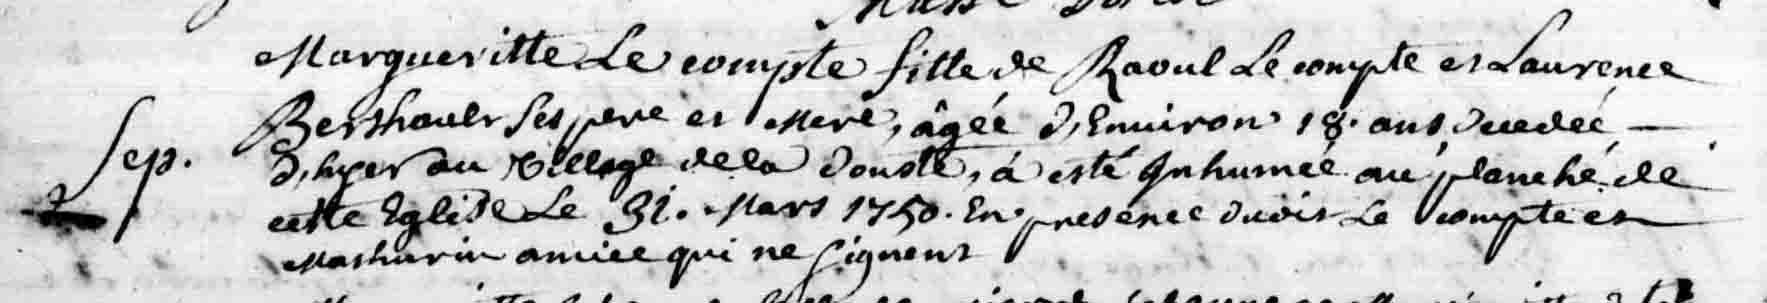 Margueritte Le compte fille de Raoul Le compte et Laurence
Berthoult ses pere et Mere, âgée d'Environ 18. ans, decedée
Sep.
d'hyer au village de la Touste, à esté Inhumée au planché de
cette Eglise Le 31. Mars 1750. En presence dudit Le compte et
Mathurin amice qui ne signent